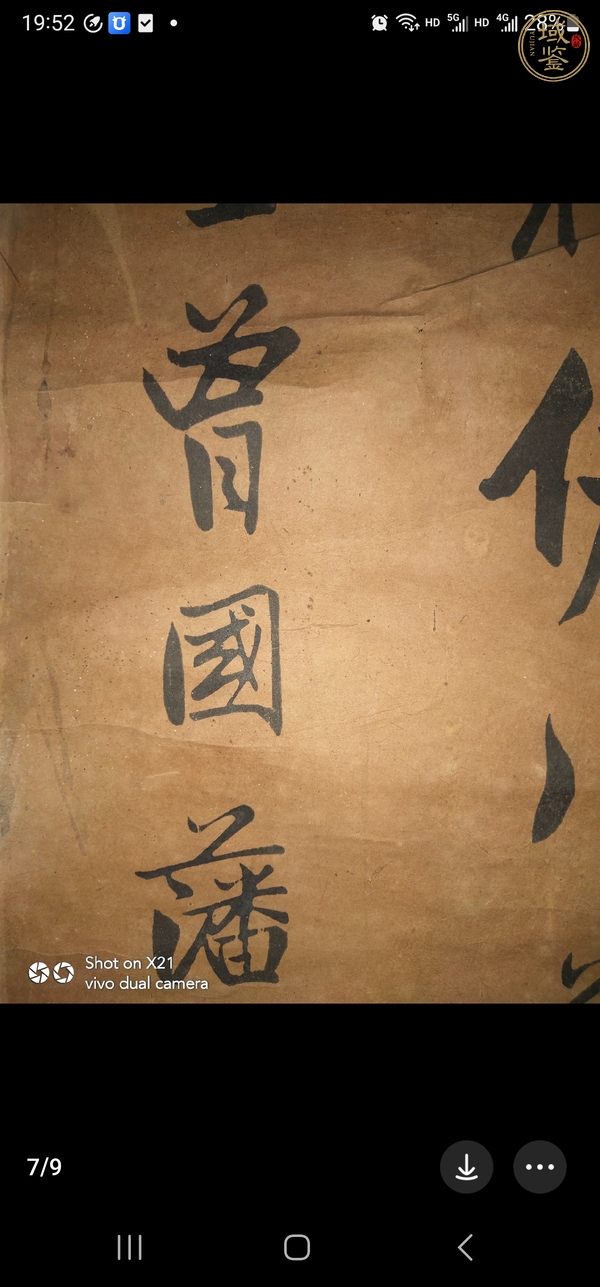 19:52
HD 5G HD 4G 28%
域鉴
YUJIAN
曾國藩
Shot on X21
vivo dual camera
7/9